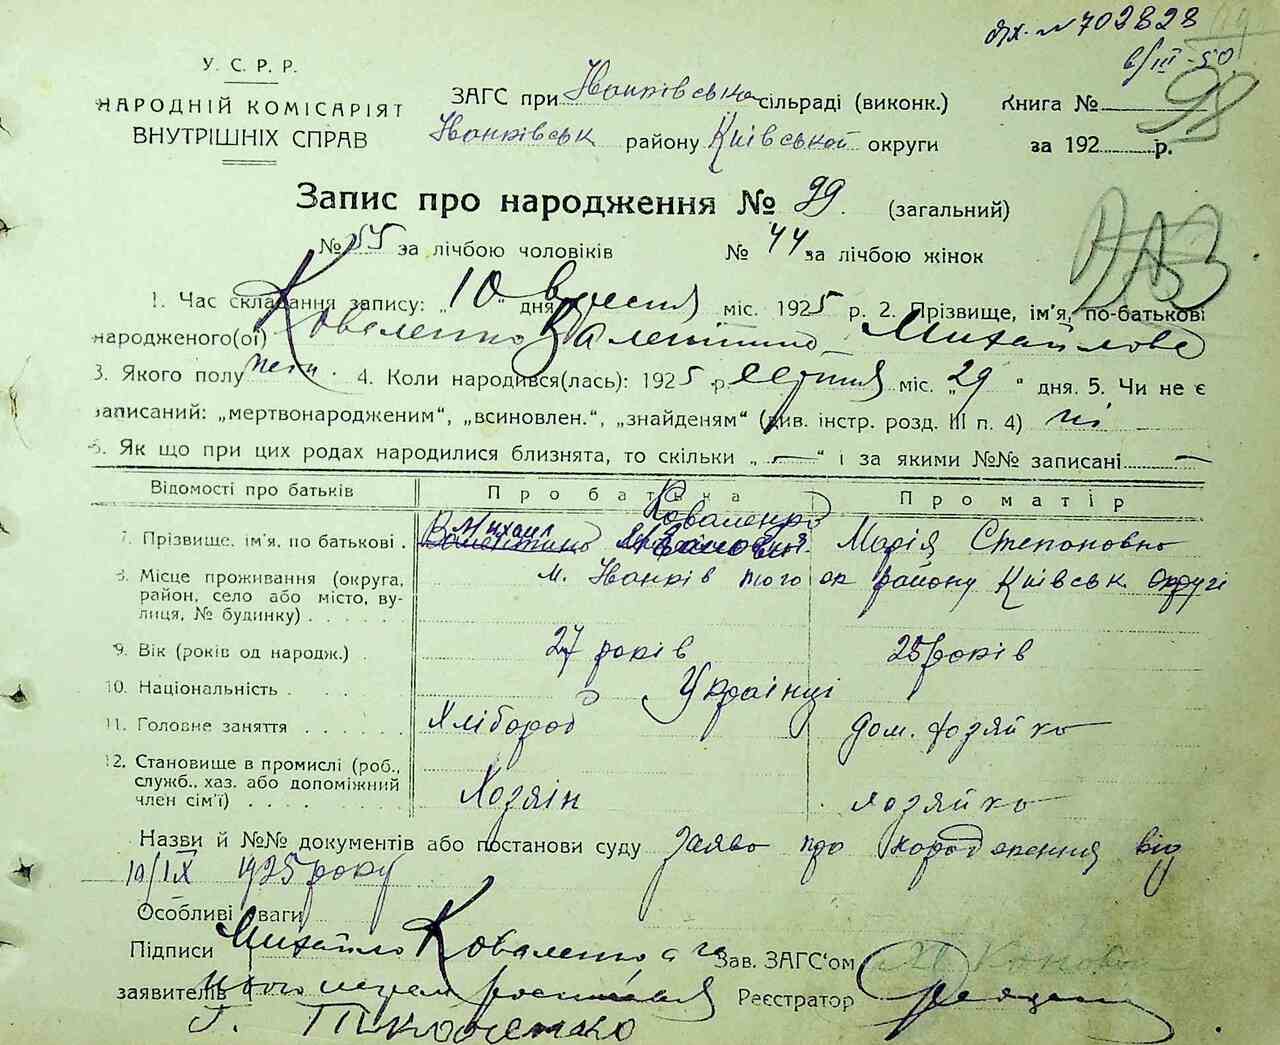 вх. № 702828
6/III-50
98
У. С. Р. Р.
НАРОДНІЙ КОМІСАРІЯТ
ВНУТРІШНІХ СПРАВ
ЗАГС при Іванківська сільраді (виконк.) Книга №
Іванківськ району Київської округи за 192 р.
Запис про народження № 99. (загальний)
№ 55 за лічбою чоловіків № 44 за лічбою жінок
1. Час складання запису: „10“ дня вересня міс. 1925 р. 2. Прізвище, ім'я, по-батькові
народженого(ої) Коваленко Валентина Михайлова
3. Якого полу жен. 4. Коли народився(лась): 1925 р. серпня міс. „29“ дня. 5. Чи не є
записаний: „мертвонародженим“, „всиновлен.“, „знайденям“ (див. інстр. розд. III п. 4) ні
6. Як що при цих родах народилися близнята, то скільки „—“ і за якими №№ записані —
Відомості про батьків Про батька Про матір
Коваленко
7. Прізвище, ім'я, по батькові . Михайл Марія Степановна
8. Місце проживання (округа, район, село або місто, вулиця, № будинку) . . . . . м. Іванків того ж району Київськ округі
9. Вік (років од народж.) . 27 років 25 років
10. Національність . . . Українці
11. Головне заняття . . . . . . Хлібороб дом. хозяйка
12. Становище в промислі (роб., служб., хаз. або допоміжний член сім'ї) . . . . . Хозяін хозяйка
Назви й №№ документів або постанови суду Заява про народження від
10/IX 1925 року
Особливі уваги
Підписи Михайло Коваленко а за Зав. ЗАГС'ом
заявителів Реєстратор